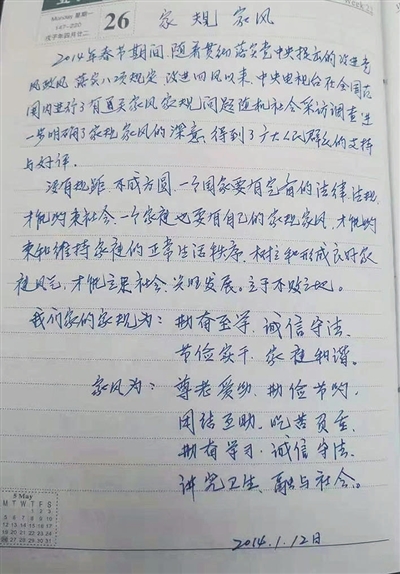 Monday 星期一
147-220
26
Week 22
家规 家风
2014年春节期间,随着贯彻落实党中央提出的改进党
风政风,落实八项规定,改进四风以来,中央电视台在全国范
围内进行了有关家风家规问题随机社会采访调查,进一
步明确了家规家风的深意,得到了广大人民群众的支持
与好评。
没有规距,不成方圆,一个国家要有完善的法律法规,
才能约束社会,一个家庭也要有自己的家规家风,才能约
束和维持家庭的正常生活秩序,树立和形成良好家
庭风气,才能立果社会,兴旺发展。立于不败之地。
我们家的家规为:勤奋至学,诚信守法、
节俭实干,家庭和谐。
家风为:尊老爱幼,勤俭节约,
团结互助,吃苦
勤奋学习,诚信守法、
讲究卫生,融与社会。
2014.1.12日
5 May
M T W T F S